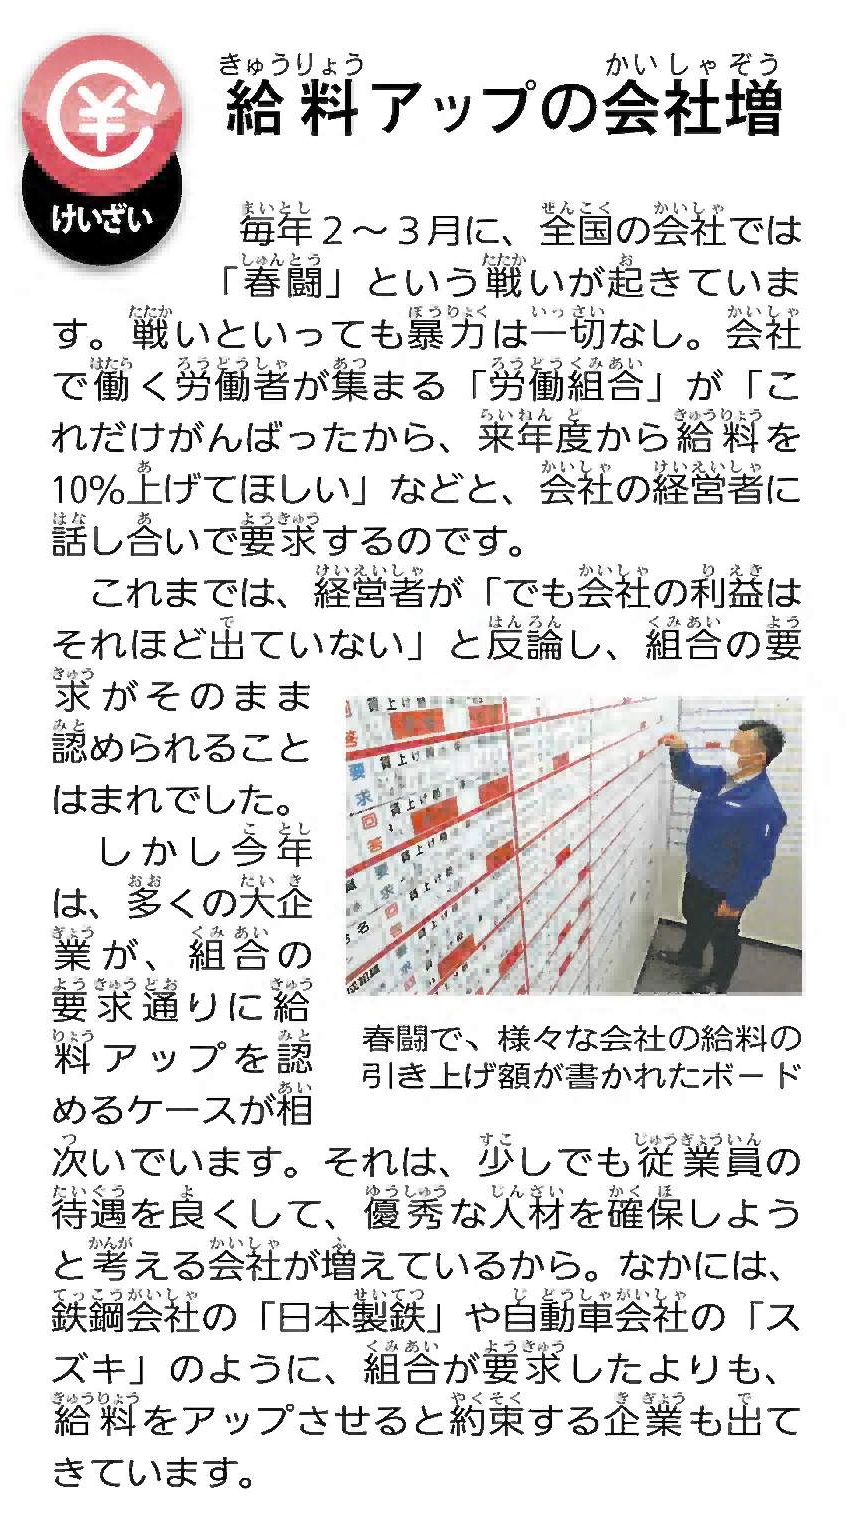 けいざい
給料アップの会社増
毎年２～３月に、全国の会社では
「春闘」という戦いが起きていま
す。戦いといっても暴力は一切なし。会社
で働く労働者が集まる「労働組合」が「こ
れだけがんばったから、来年度から給料を
10％上げてほしい」などと、会社の経営者に
話し合いで要求するのです。
これまでは、経営者が「でも会社の利益は
それほど出ていない」と反論し、組合の要
求がそのまま
認められること
はまれでした。
しかし今年
は、多くの大企
業が、組合の
要求通りに給
料アップを認
めるケースが相
次いでいます。それは、少しでも従業員の
待遇を良くして、優秀な人材を確保しよう
と考える会社が増えているから。なかには、
鉄鋼会社の「日本製鉄」や自動車会社の「ス
ズキ」のように、組合が要求したよりも、
給料をアップさせると約束する企業も出て
きています。
春闘で、様々な会社の給料の
引き上げ額が書かれたボード